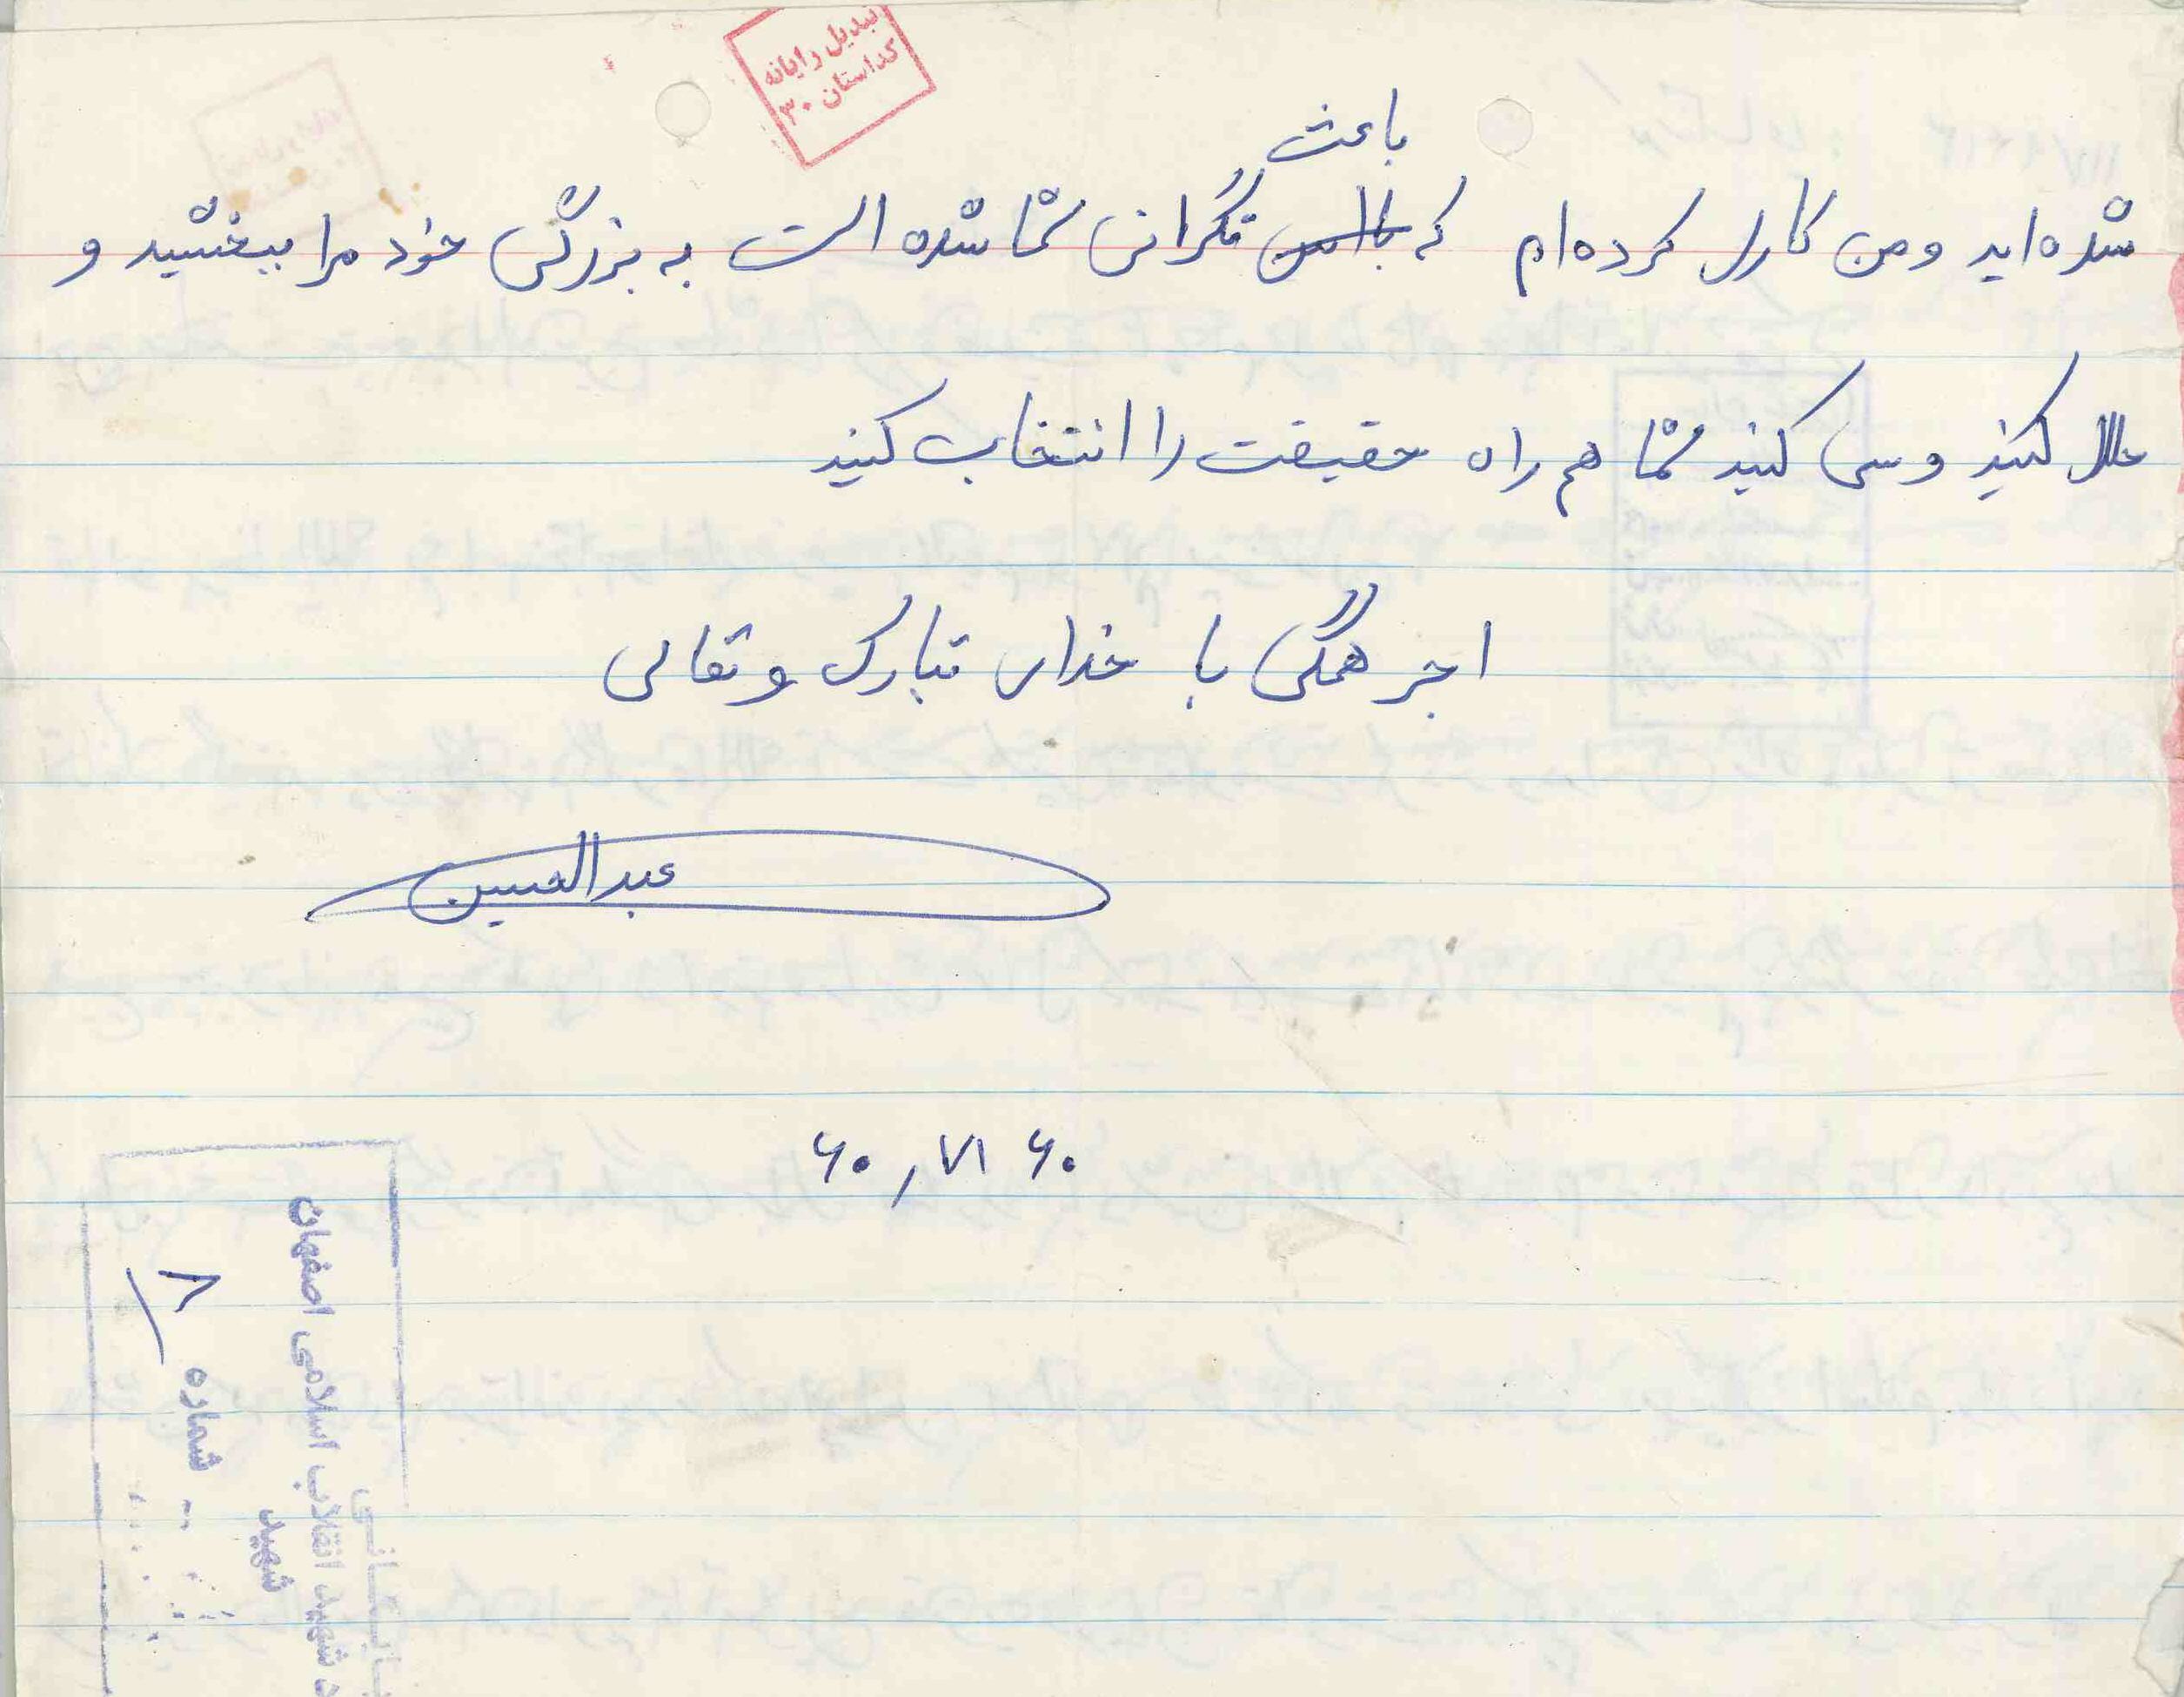 تبدیل رایانه
کداستان ۳۰
باعث
شده‌اید و من کاری کرده‌ام که نگرانی شما شده است به بزرگی خود مرا ببخشید و
حلال کنید و سعی کنید شما هم راه حقیقت را انتخاب کنید
اجر همگی با خدای تبارک و تعالی
عبدالحسین
۶۰ ۷۱ ر ۶۰
بایگانی
شهید انقلاب اسلامی اصفهان
شهید
شماره